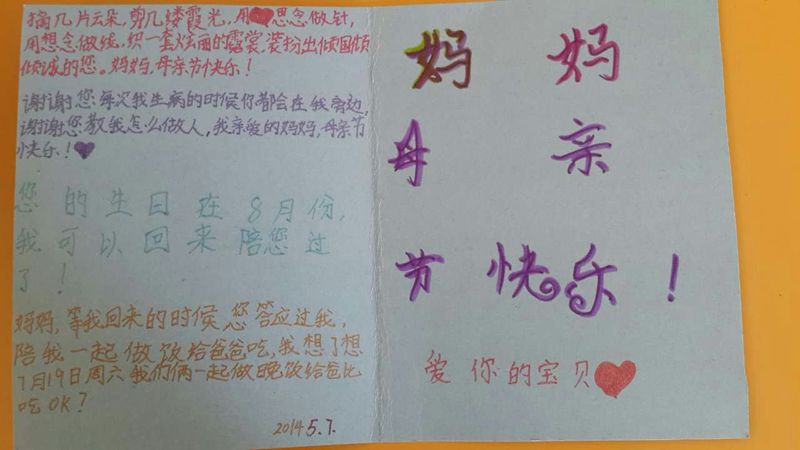 摘几片云朵,剪几缕霞光,用❤思念做针,
用想念做线,织一套炫丽的霓裳,装扮出倾国倾
倾诚的您。妈妈,母亲节快乐!
谢谢您每次我生病的时候你都会在我旁边,
谢谢您教我怎么做人,我亲爱的妈妈,母亲节
快乐!
您的生日在8月份,
我可以回来陪您过
了!
妈妈,等我回来的时候,您答应过我,
陪我一起做饭给爸爸吃,我想了想
7月19日周六我们俩一起做晚饭给爸比
吃OK?
2014 5.7.
妈妈
母亲
节快乐!
爱你的宝贝